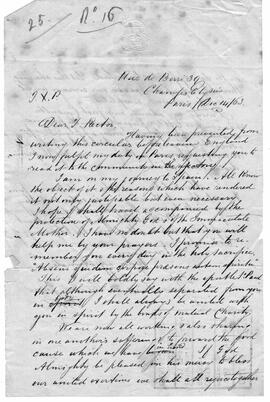 25. No. 16
Rue de Berri 39
Champs Elysées
Paris, Dec 14/63.
J. X. P.
Dear F. Rector
Having been prevented from
writing this circular before leaving England
I now fulfil my duty in Paris, requesting you to
read it to the Community in the refectory.
I am on my journey to Spain. All know
the object of it & the reasons which have rendered
it not only justifiable but even necessary.
I hope I shall be accompanied by the
protection of Almighty God & of the Immaculate
Mother. I have no doubt but that you will
help me by your prayers. I promise to re-
member you every day in the holy sacrifice,
Absens quidem corpore, praesens autem spiritu.
This I will boldly say with the apostle St Paul
that although bodily separated from you
in I shall always be united with
you in spirit by the bonds of mutual Charity.
We are now all working & also sharing
in one another's sufferings to forward the good
cause which we have in hand. If God
Almighty be pleased in his mercy to bless
our united exertions we shall all rejoice together